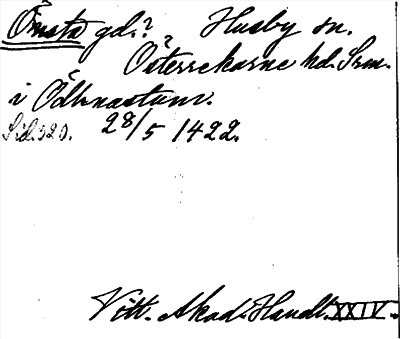 Ömsta gd.? Husby sn.
Österrekarne hd. Srm.
i Ödhnastum.
Sid. 320. 28/5 1422.
Vitt. Akad. Handl. XXIV.